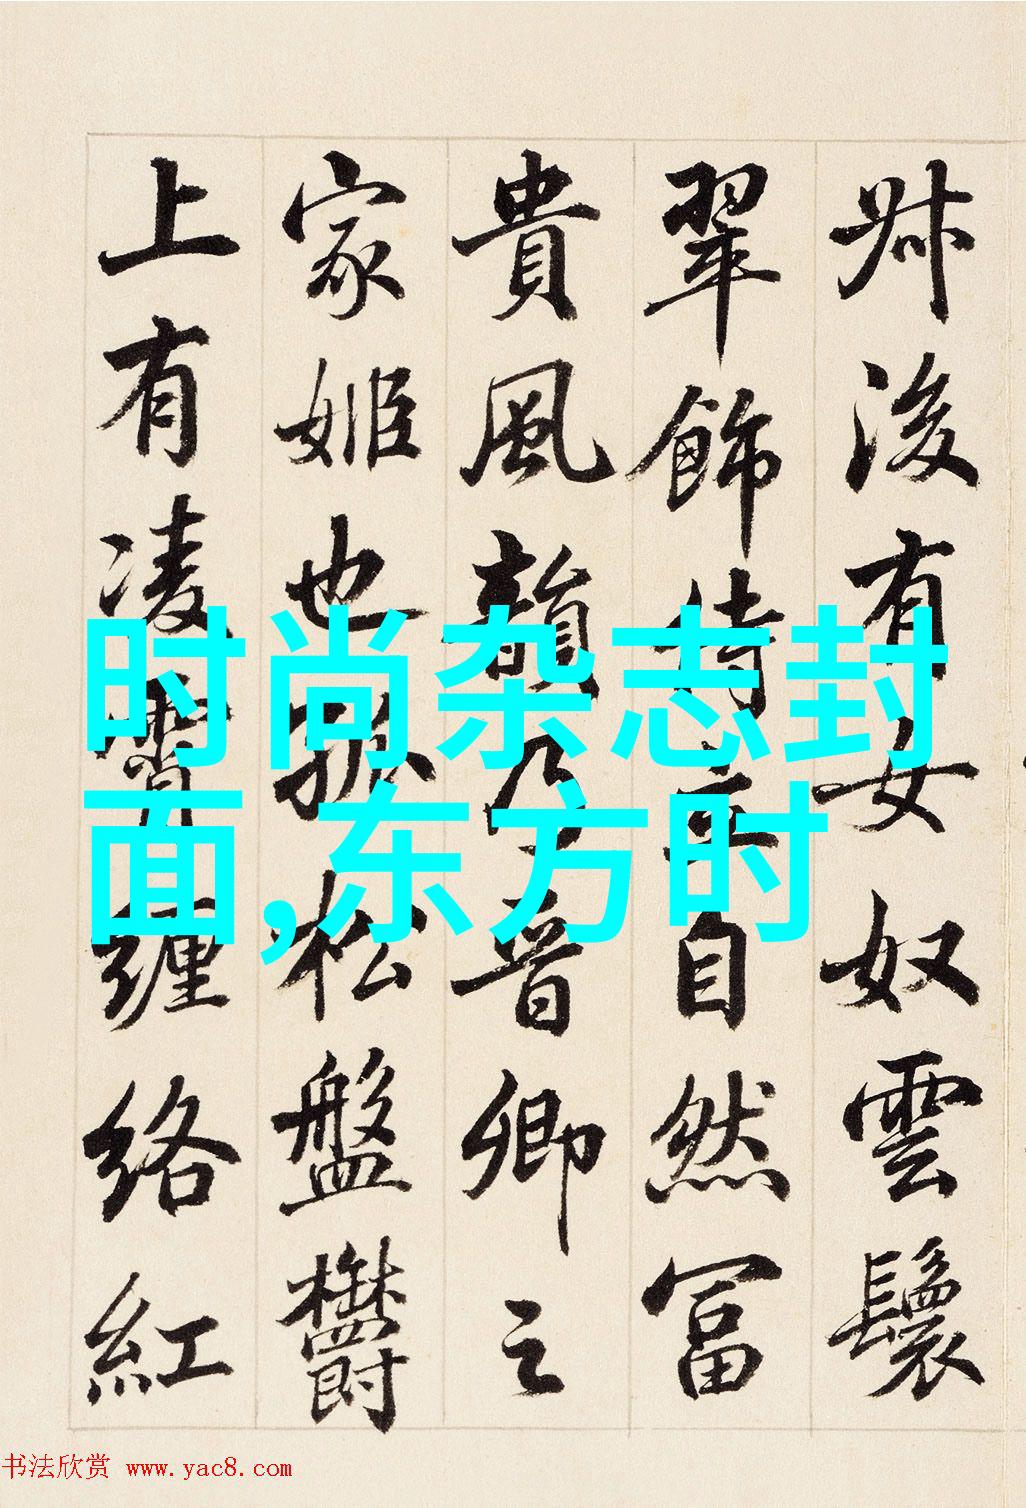 牀後有女奴雲鬟
翠飾侍立自然富
貴風韻乃晉卿之
家姬也孤松盤鬱
上有凌霄纏络紅
时尚杂志封
面,东方时
书法欣赏 www.yac8.com